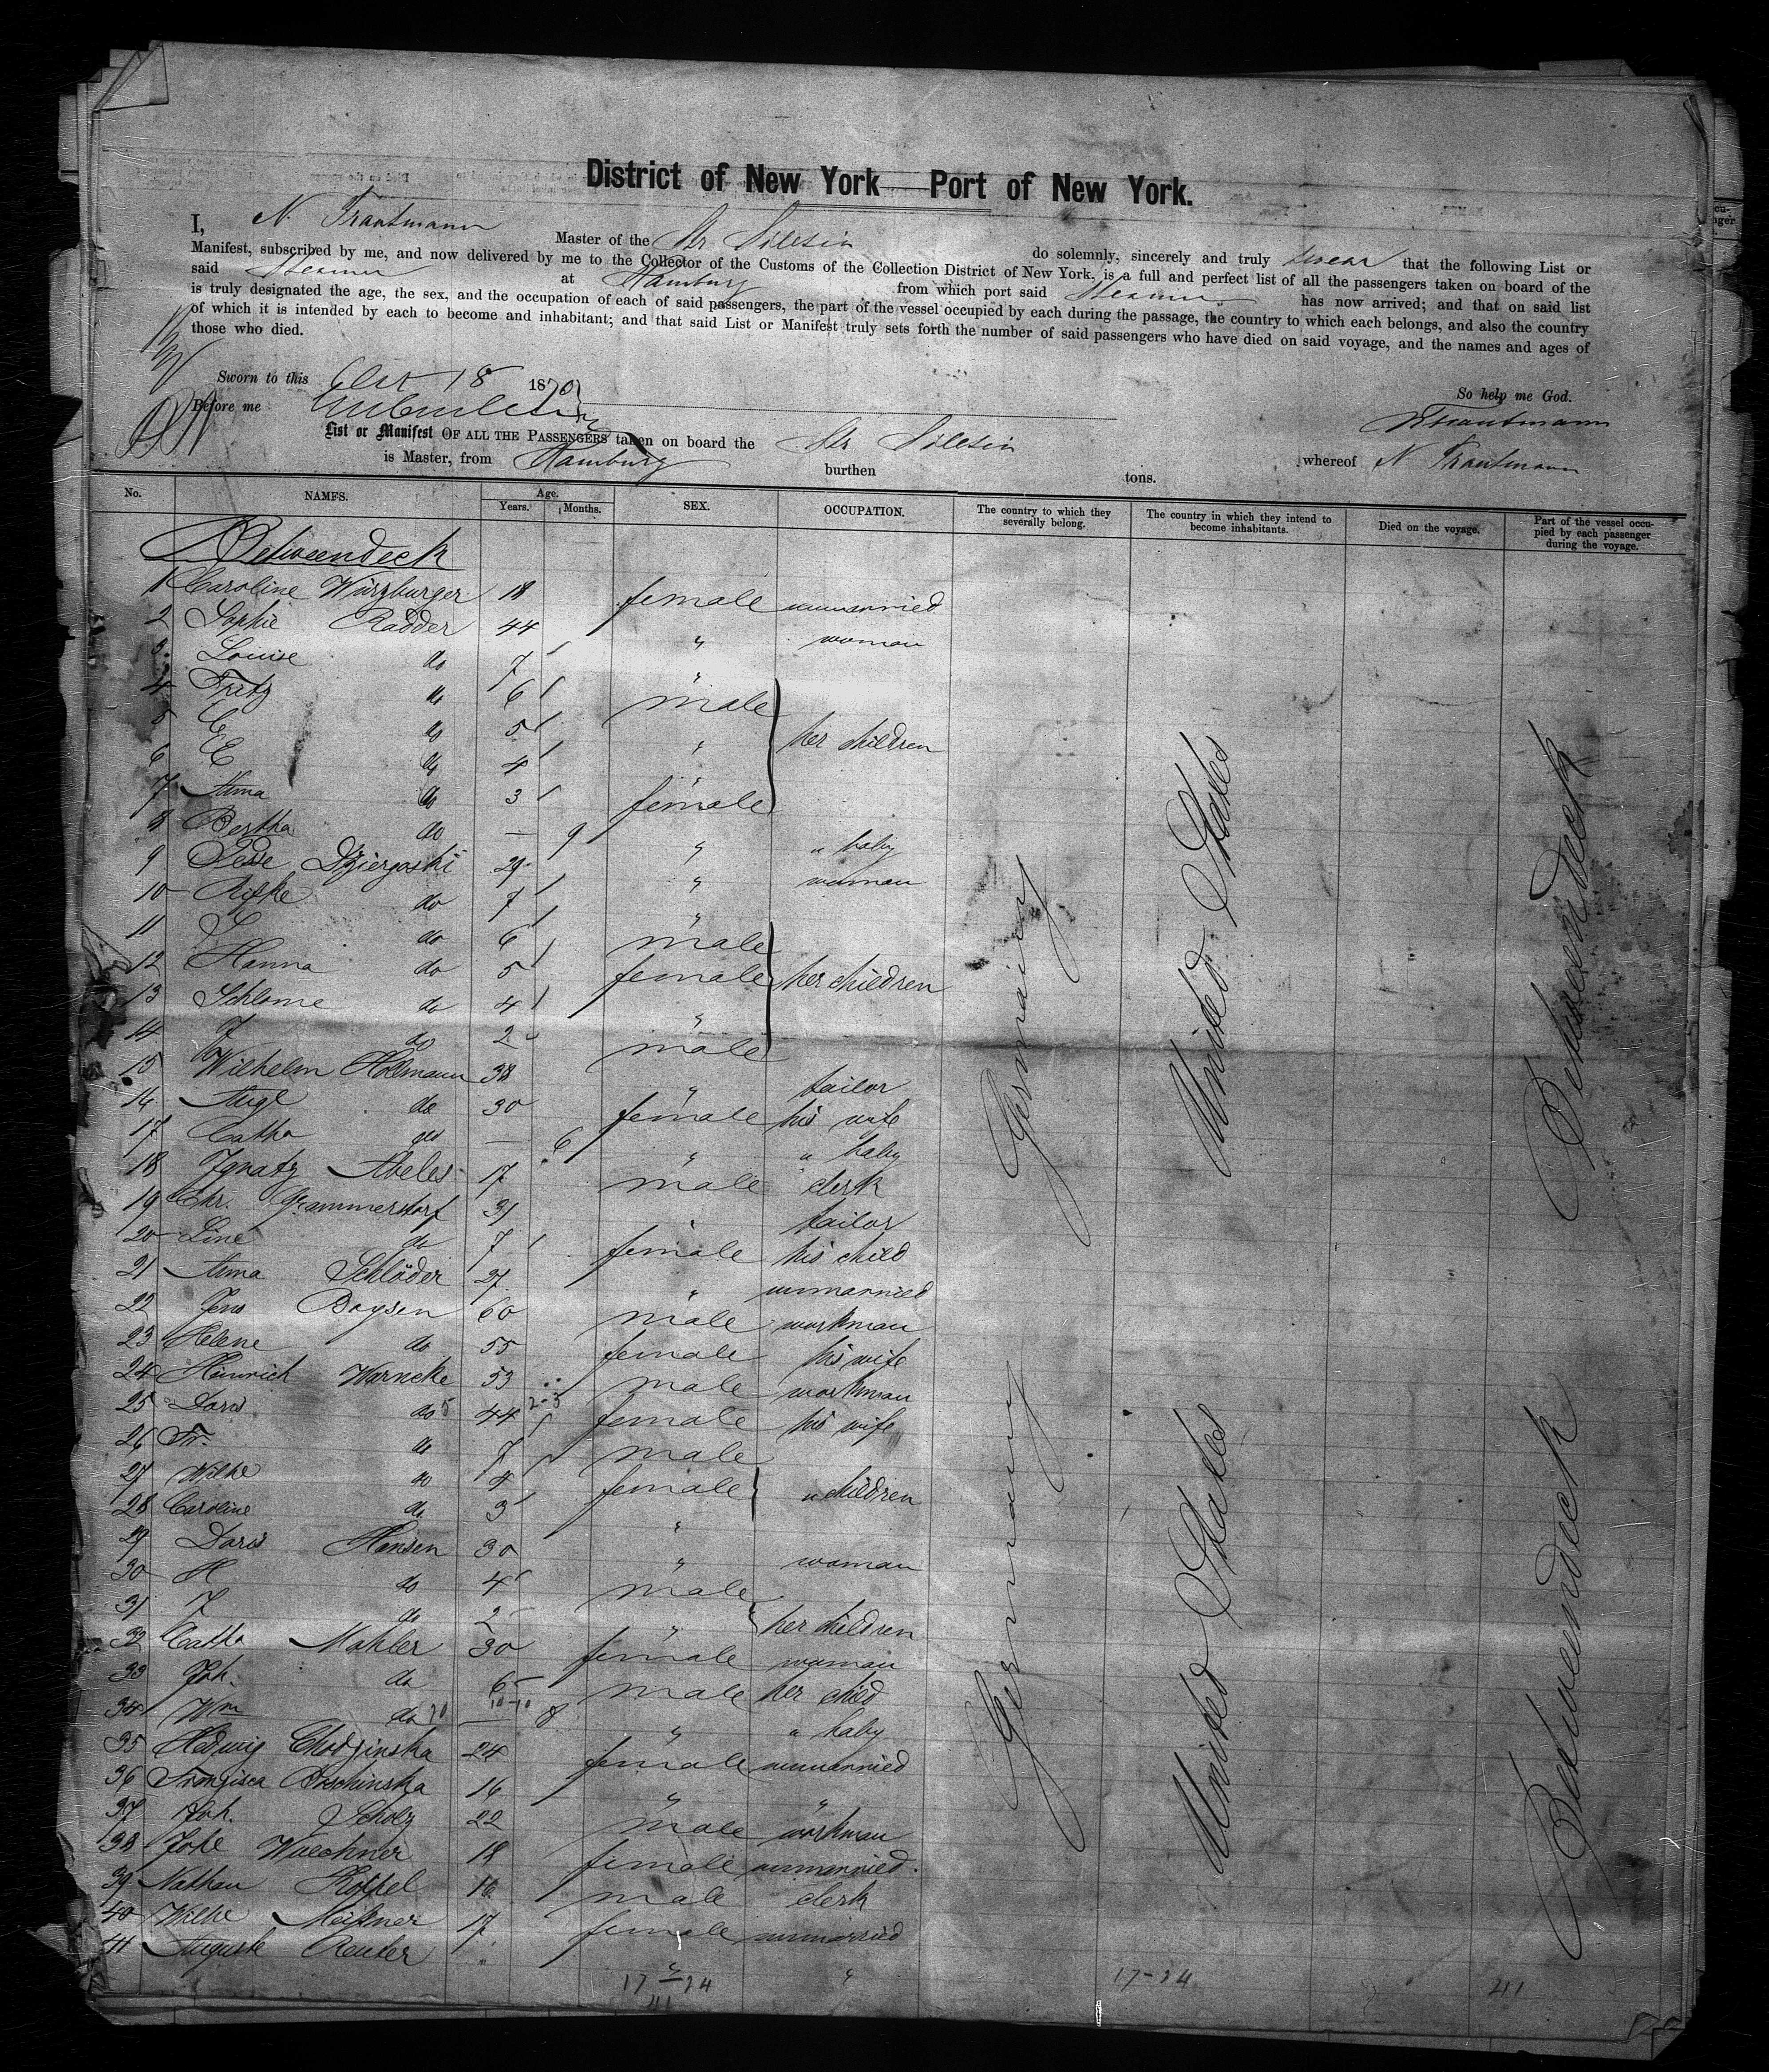 District of New York—Port of New York.
I, N. Trautmann Master of the Str Silesia do solemnly, sincerely and truly swear that the following List or
Manifest, subscribed by me, and now delivered by me to the Collector of the Customs of the Collection District of New York, is a full and perfect list of all the passengers taken on board of the
said Steamer at Hamburg from which port said Steamer has now arrived; and that on said list
is truly designated the age, the sex, and the occupation of each of said passengers, the part of the vessel occupied by each during the passage, the country to which each belongs, and also the country
of which it is intended by each to become and inhabitant; and that said List or Manifest truly sets forth the number of said passengers who have died on said voyage, and the names and ages of
those who died.
Sworn to this 18 1870
So help me God.
Before me
Trautmann
List or Manifest OF ALL THE PASSENGERS taken on board the Str Silesia whereof N Trautmann
is Master, from Hamburg burthen tons.
No. NAMES. Age. Years. Months. SEX. OCCUPATION. The country to which they severally belong. The country in which they intend to become inhabitants. Died on the voyage. Part of the vessel occupied by each passenger during the voyage.
Betweendeck
1 Caroline Würzburger 18 female unmarried
2 Sophie Radder 44 " woman
3 Louise do 7 "
4 Fritz do 6 male
5 C do 5 " her children
6 E do 4 "
7 Anna do 3 female
8 Bertha do — 9 " " baby
9 Pesse Dziergoski 29 " woman
10 Rifke do 7 "
11 do 6 male
12 Hanna do 5 female her children
13 Schlome do 4 "
14 J do 2 male
15 Wilhelm Hollmann 38 " tailor
16 Aug. do 30 female his wife
17 Catha do — 6 " " baby
18 Ignatz Abeles 17 male clerk
19 Chr. Grammerstorf 31 " tailor
20 Line do 7 female his child
21 Anna Schlöder 27 " unmarried
22 Jens Boysen 60 male workman
23 Helene do 55 female his wife
24 Heinrich Warncke 53 male workman
25 Doris do 44 female his wife
26 Fr. do 7 male
27 Wilhe do female " children
28 Caroline do 3 "
29 Doris Hansen 30 " woman
30 H do 4 male
31 J do 2 " her children
32 Catha Mahler 30 female woman
33 Joh. do 6 male her child
34 Wm do — 8 " " baby
35 Hedwig Chodzinska 24 female unmarried
36 Franzisca 16 " "
37 Joh. Scholz 22 male workman
38 Woechner 18 female unmarried
39 Nathan Koppel 16 male clerk
40 Wilhe Meißner 17 female unmarried
41 Auguste Reuter " " "
Germany
United States
Betweendeck
Germany
United States
Betweendeck
17-24
41
17-24
41